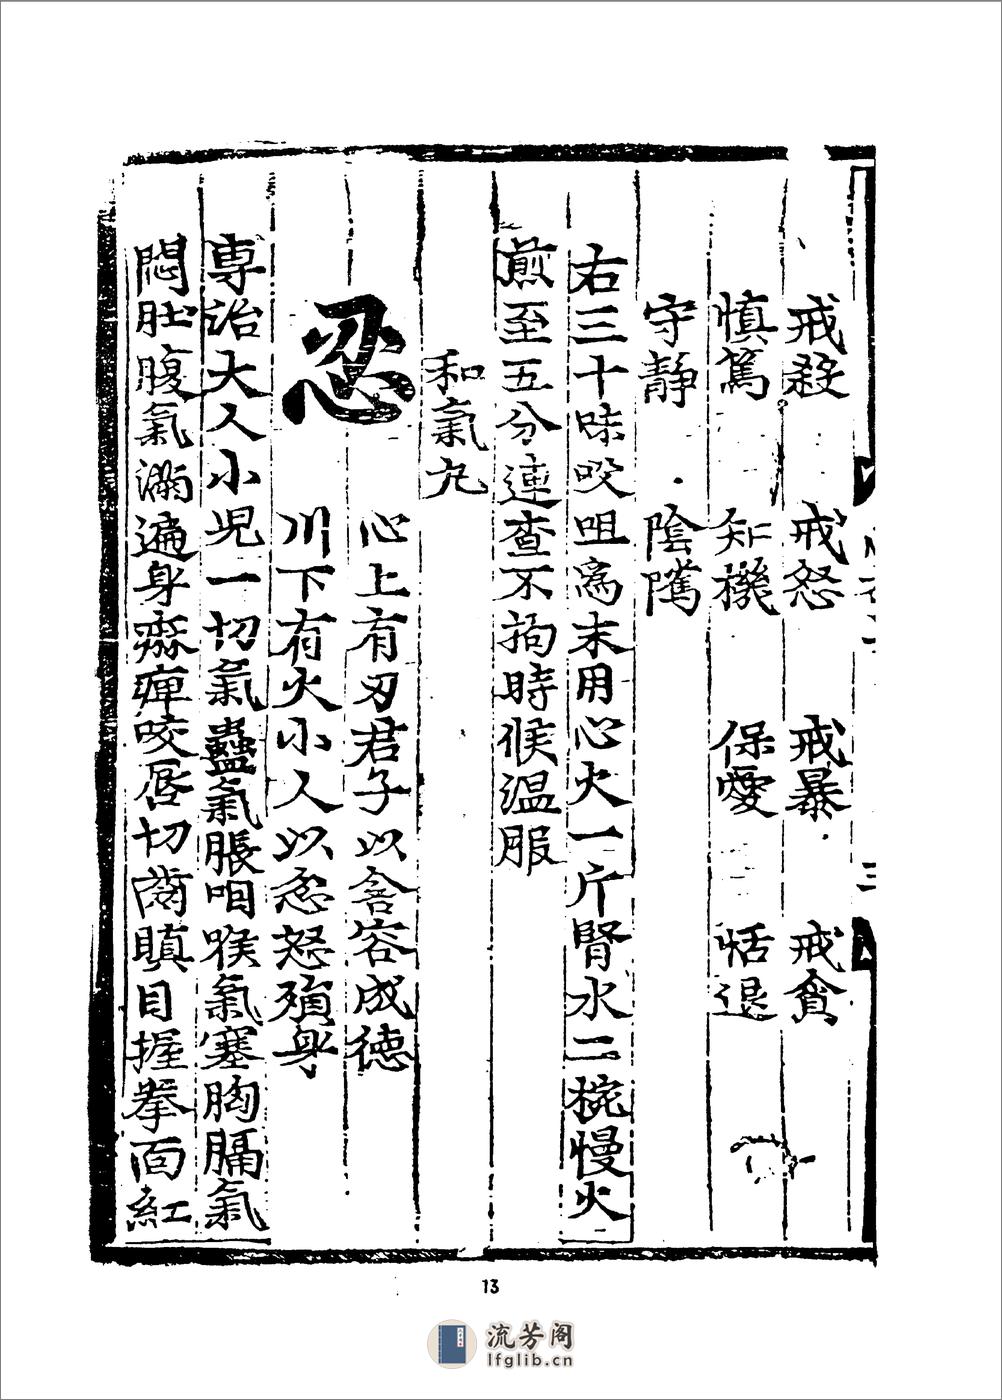 戒殺 戒怒 戒暴 戒貪
慎篤 知機 保愛 恬退
守靜 陰隲
右三十味㕮咀為末用心火一斤腎水二椀慢火
煎至五分連查不拘時候温服
和氣丸
忍
心上有刃君子以含容成德
川下有火小人以忿怒殞身
專治大人小兒一切氣蠱氣脹咽喉氣塞胸膈氣
悶肚腹氣滿遍身麻痺咬唇切齒瞋目握拳面紅
13
流芳阁
lfglib.cn